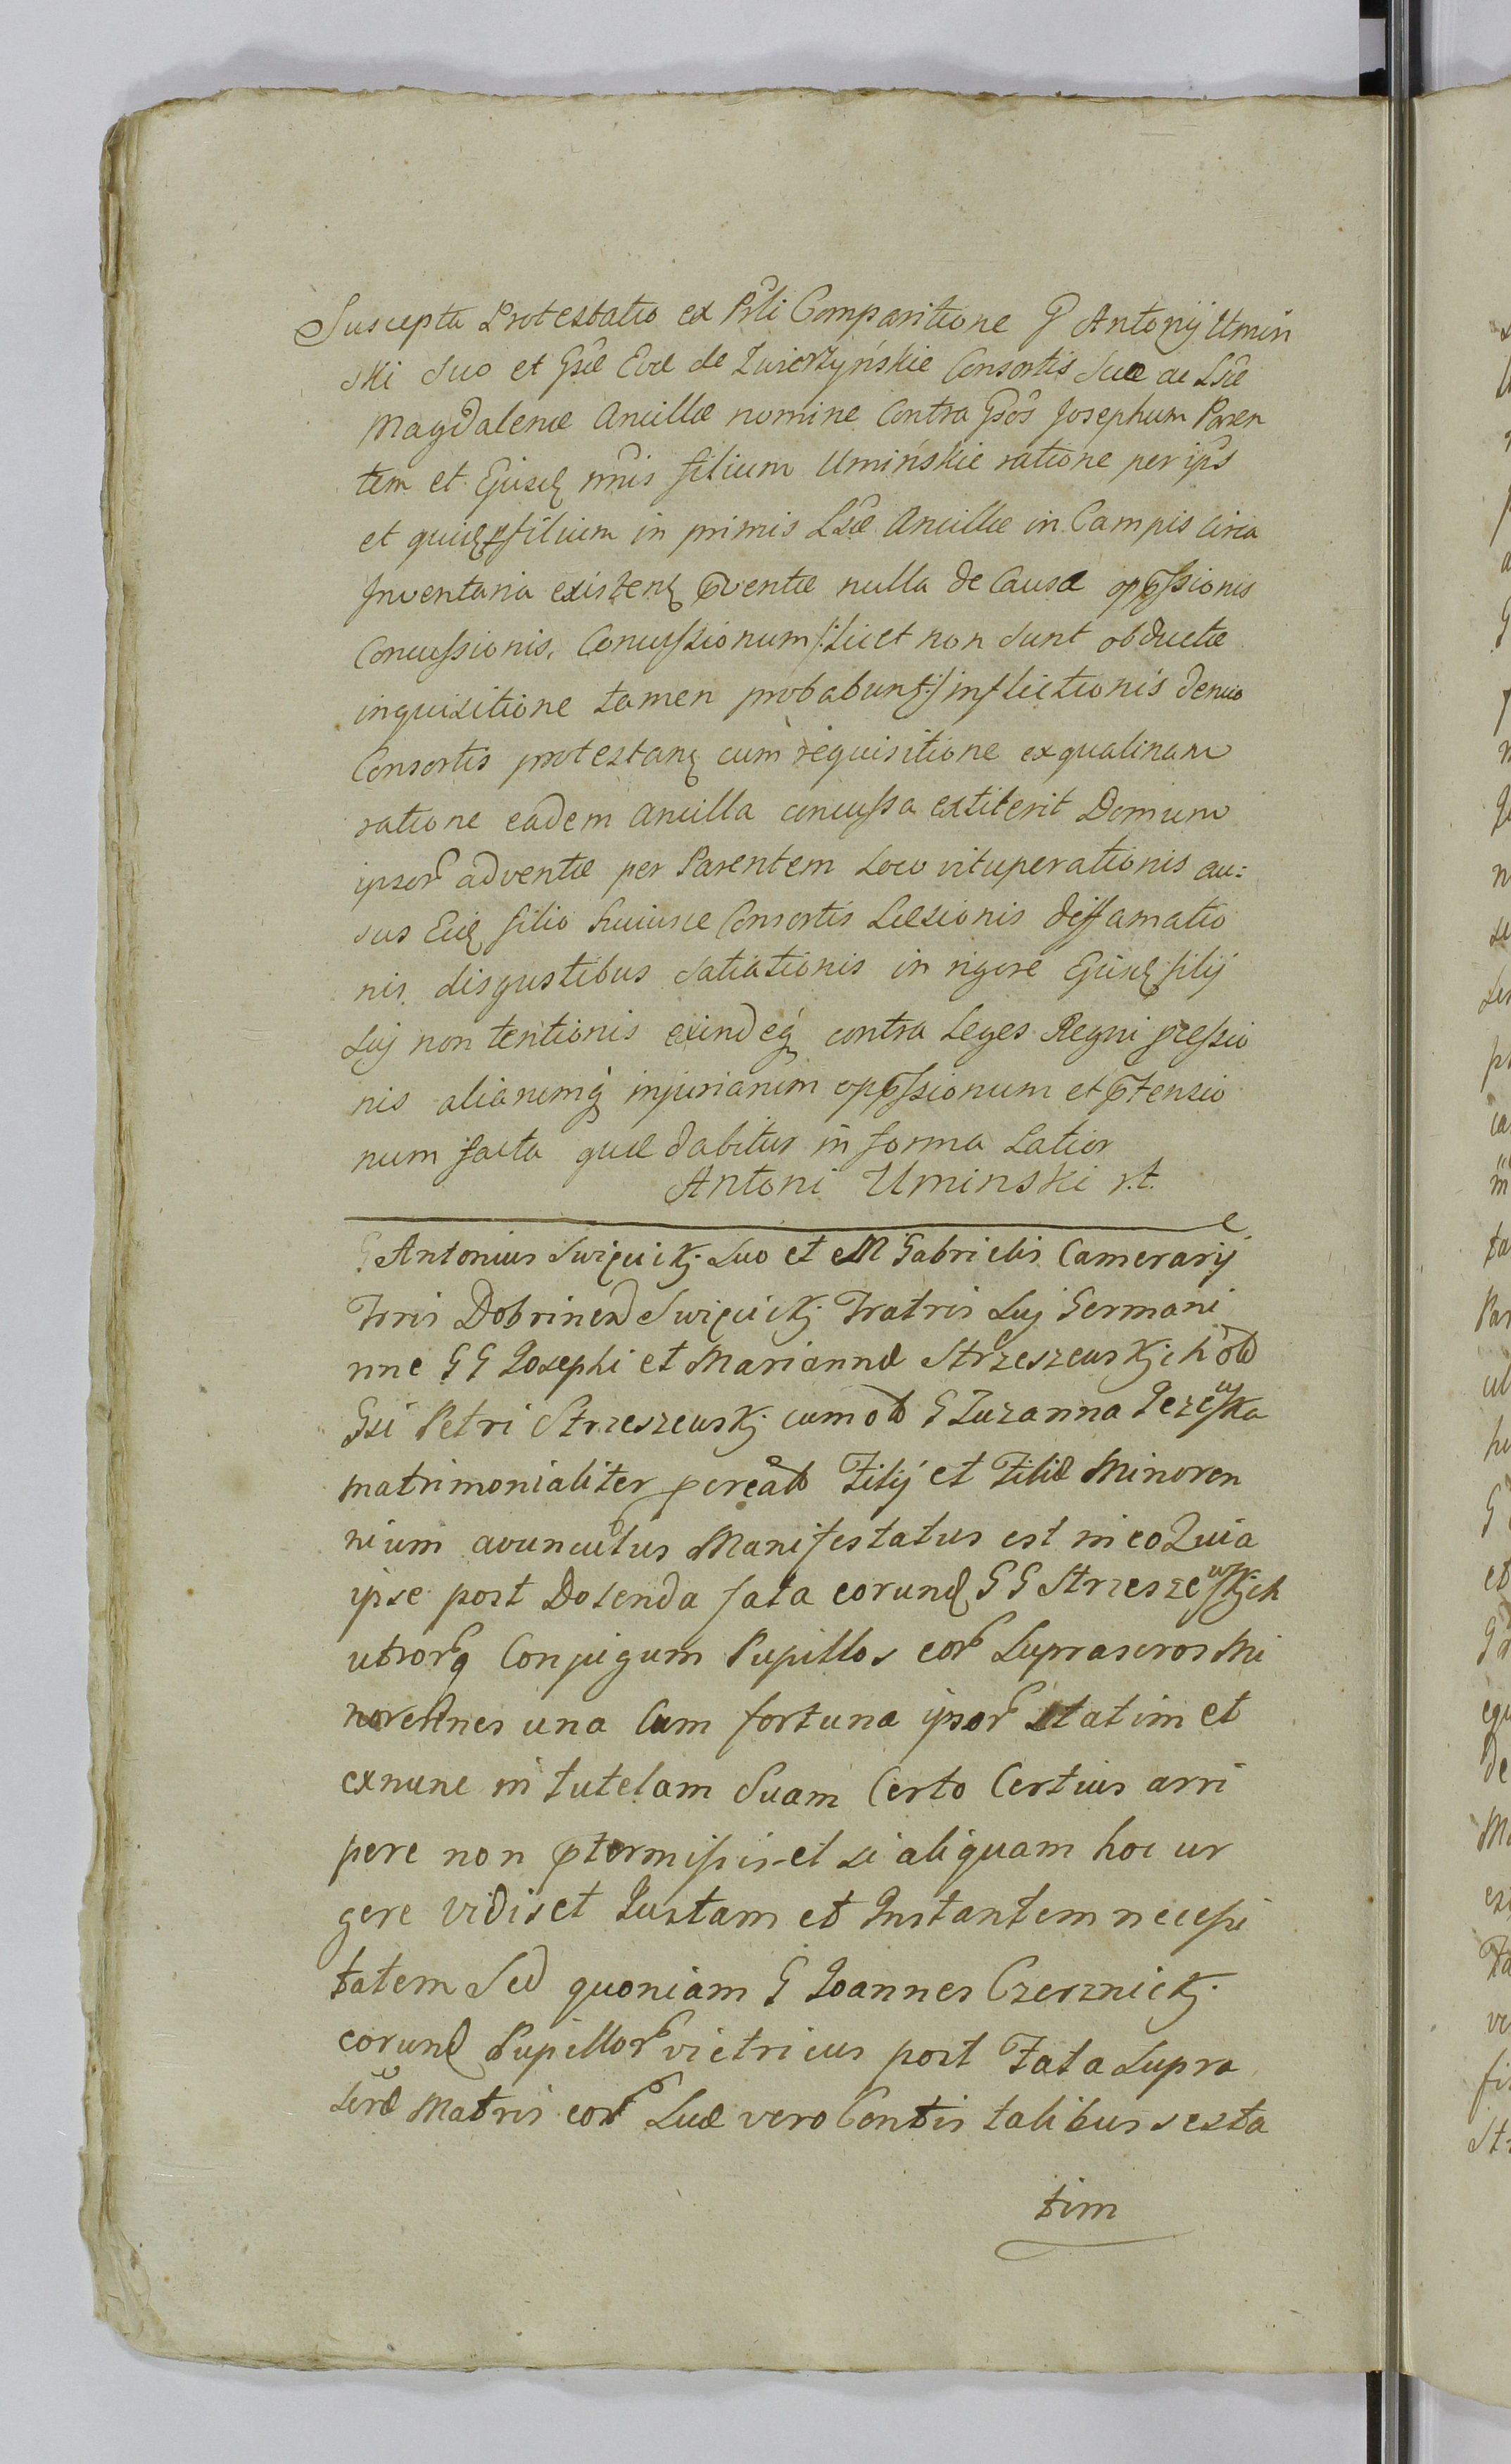 Suscepta Protestatio ex Prli Comparitione G Antonij Umin
ski suo et Gsæ Evæ de Zwierzyńskie Consortis suæ ac Lsæ
Magdalenæ Ancillæ nomine Contra Gsos Josephum Paren
tem et Ejusd mnis filium Umińskie ratione per ips
et quid filium in primis Lsæ Ancillæ in Campis circa
Inventaria existen ventæ nulla de Causa oppssionis
Concussionis, Concussionum /:licet non sunt obductæ
inquisitione tamen probabunt:/ inflictionis denuo
Consortis protestan cum requisitione exqualinam
ratione eadem ancilla concussa extiterit Domum
ipsor adventæ per Parentem Loco vituperationis au:
sus Eid filio huiusce Consortis Læsionis diffamatio
nis disgustibus satiationis in rigore Ejusd filij
sui non tentionis exindeq contra Leges Regni gressio
nis aliarumq injuriarum oppssionum et ptensio
num facta quæ dabitur in forma Latior
Antoni Uminski r.t.
G Antonius Swięcickj. Suo et M Gabrielis Camerarij
Trris Dobrinen Swięcickj. Fratris Suj Germani
nne G G Josephi et Mariannæ Strzeszewskjch ol
Gsi Petri Strzeszewskj cum ol G Zuzanna Jezewska
matrimonialiter pcreat Filij et Filiæ Minoren
nium avunculus Manifestatus est in eo Quia
ipse post Dolenda fata eorund G G Strzeszewskjch
utrorq Conjugum Pupillos eor Suprascros Mi
norennes una Cum fortuna ipsor statim et
exnunc in tutelam Suam Certo Certius arri
pere non ptermisis-et si aliquam hoc ur
gere vidiset Justam et Instantem necessi
tatem Sed quoniam G Joannes Czersnickj.
eorund Pupillor vietricus post Fata Supra
scræ Matris eor Suæ vero Contis talibus sexta
tim